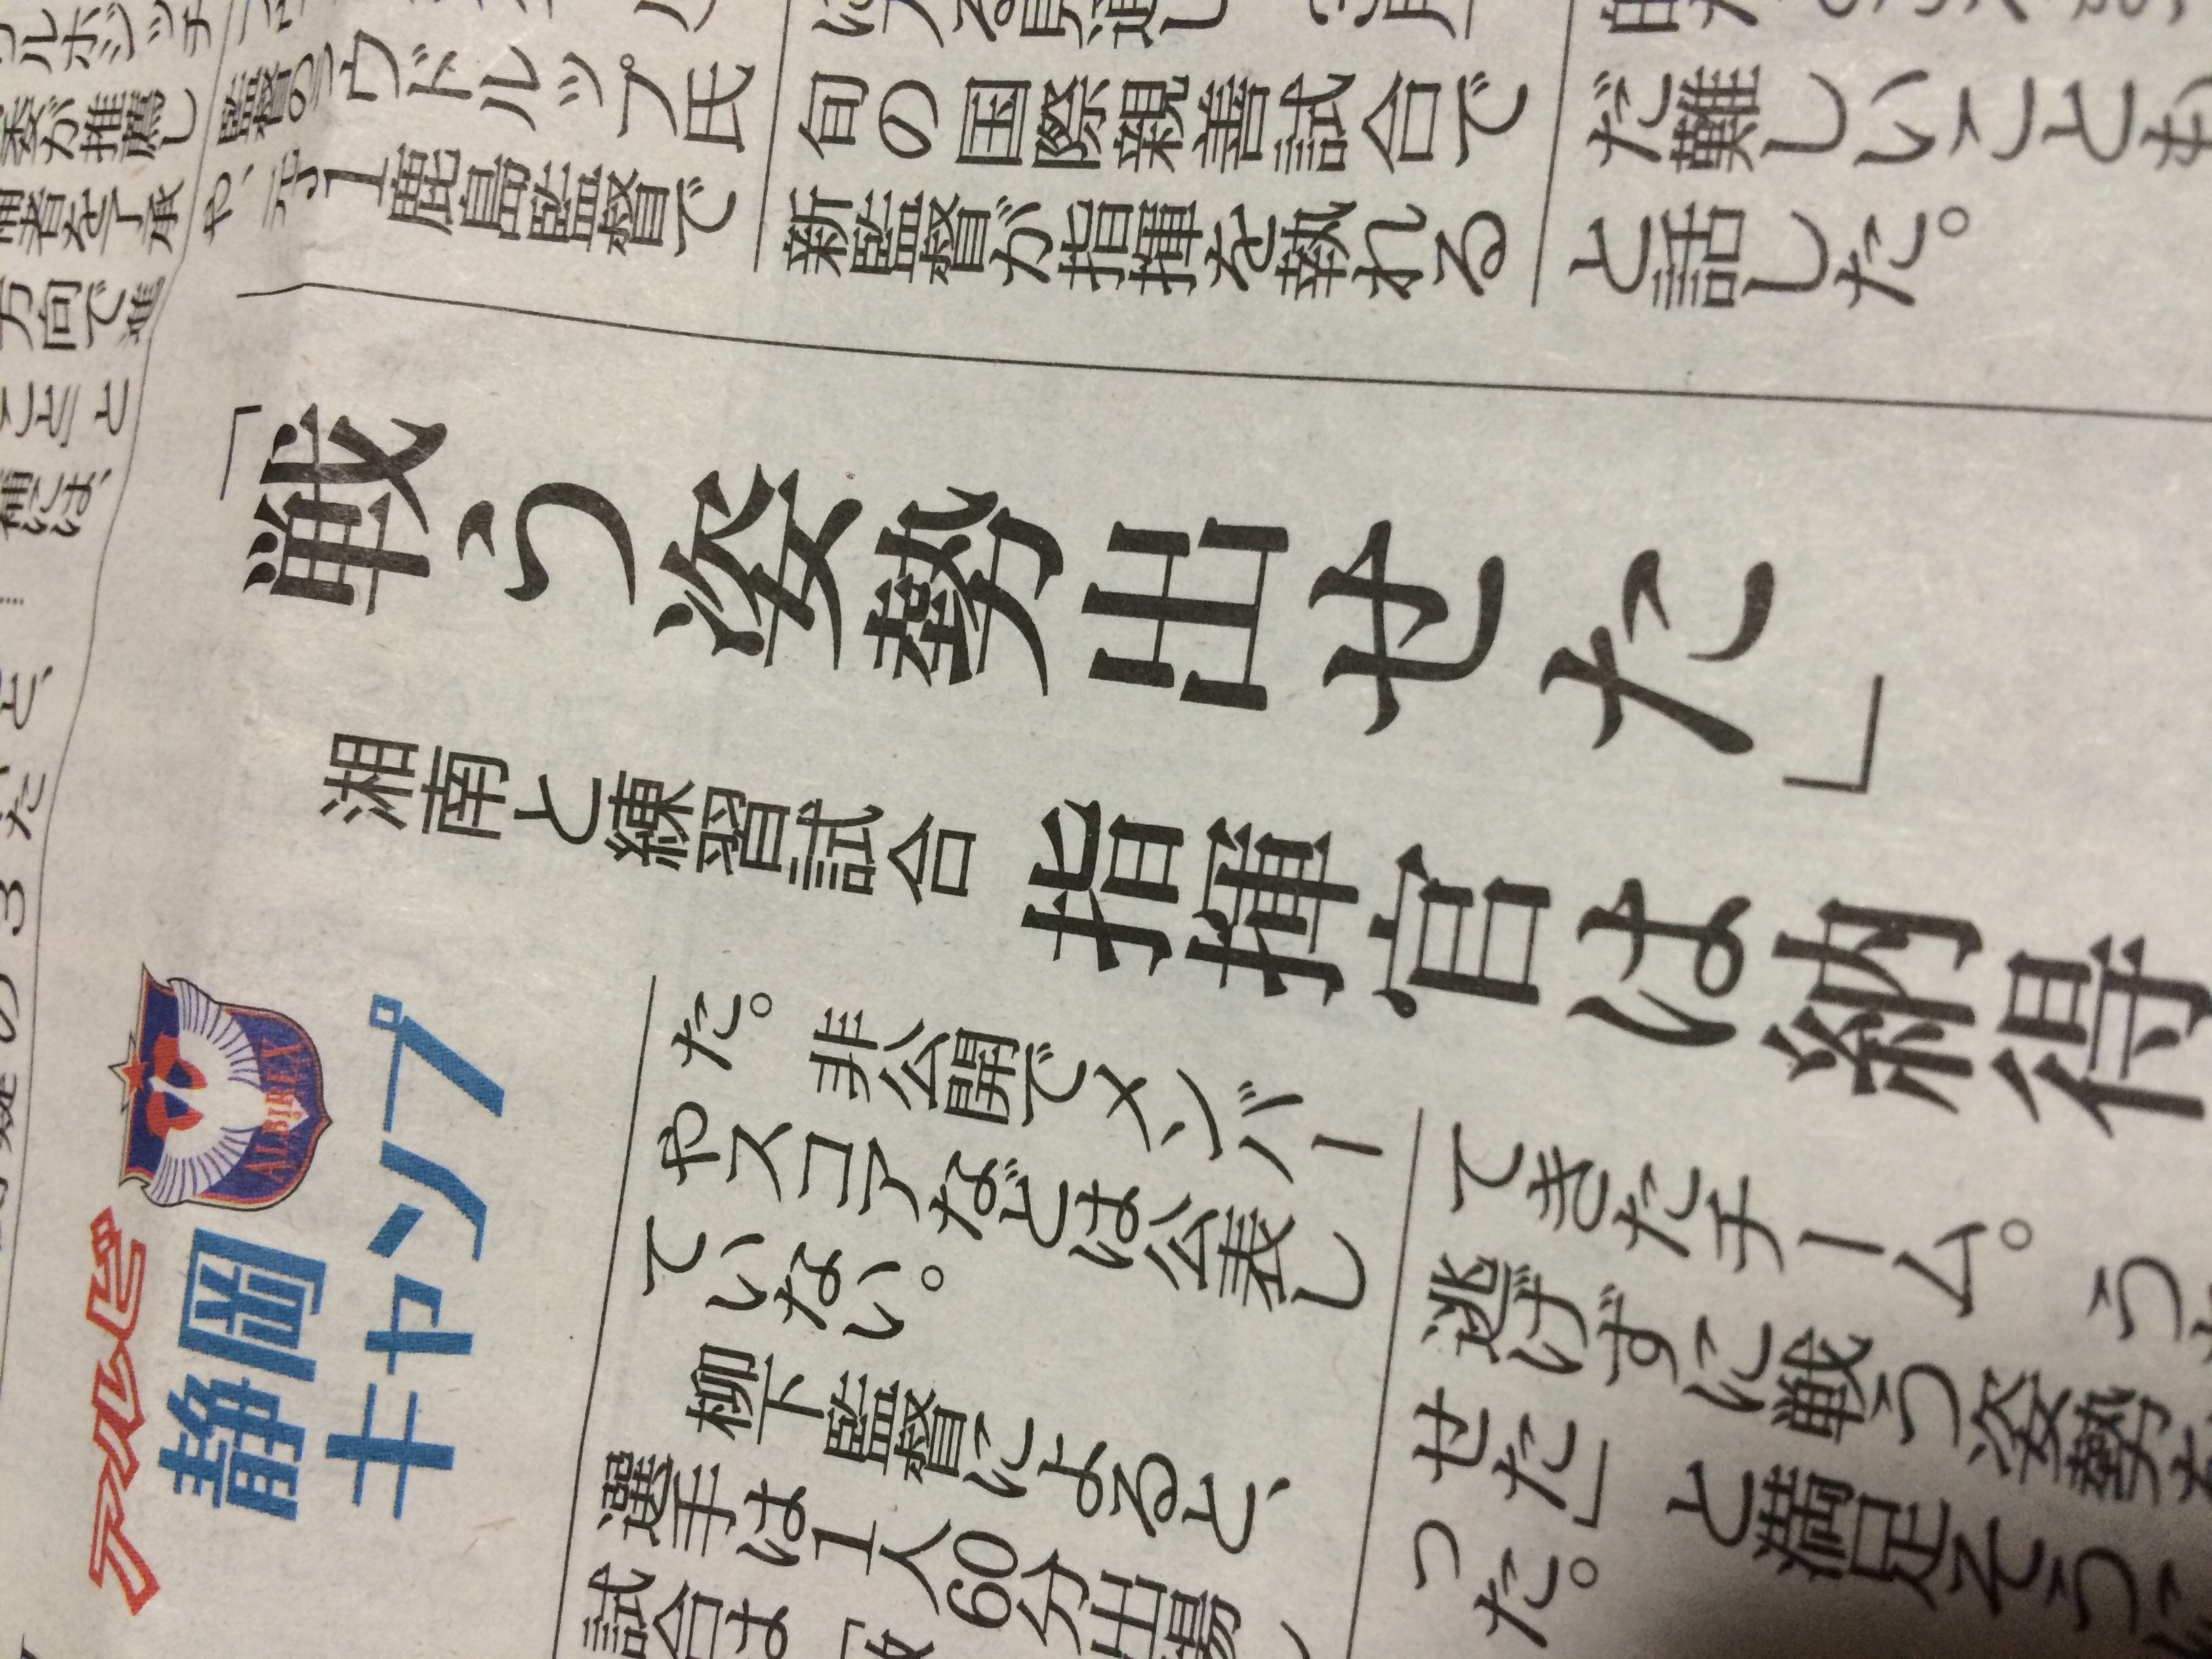 ルホジッチ
委が推薦し
補者を了承
方向で進
ウドルップ氏
や、元J1鹿島監督で
旬の国際親善試合で
新監督が指揮を執れる
だ難しいことも
と話した。
「戦う姿勢出せた」
湘南と練習試合 指揮官は納得
アルビ
ALBIREX
静岡
キャンプ
だ。非公開でメンバー
やスコアなどは公表し
ていない。
柳下監督によると、
選手は1人60分出場
試合は
てきたチーム。
逃げずに戦う姿勢を
せた」と満足そうに
った。